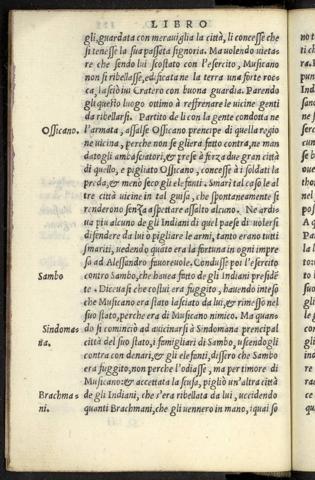 LIBRO
gli, guardata con merauiglia la città, li concesse che
si tenesse la sua passata signoria. Ma uolendo uieta-
re che sendo lui scostato con l'esercito, Musicano
non si ribellasse, edificata ne la terra una forte roc-
ca, lascioui Cratero con buona guardia. Parendo
gli questo luogo ottimo à reffrenare le uicine genti
da ribellarsi. Partito de lì con la gente condotta ne
Ossicano. l'armata, assalse Ossicano prencipe di quella regio
ne uicina, perche non se gli era fatto contra, ne man
datogli ambasciatori, & prese à forza due gran città
di quello, e pigliato Ossicano, concesse à i soldati la
preda, & menò seco gli elefanti. Smarì tal caso le al
tre città uicine in tal guisa, che spontaneamente si
renderono senza aspettare assalto alcuno. Ne ardi-
ua piu alcuno de gli Indiani di quel paese di uolersi
difendere da lui o pigliare le armi, tanto erano tutti
smariti, uedendo quāto era la fortuna in ogni impre
sa ad Alessandro fauoreuole. Condusse poi l'esercito
Sambo contra Sambo, che hauea fatto de gli Indiani presidē
te. Diceuasi che costui era fuggito, hauendo inteso
che Musicano era stato lasciato da lui, & rimesso nel
suo stato, perche era di Musicano nimico. Ma quan-
Sindoma- do si cominciò ad auicinarsi à Sindomana prencipal
na. città del suo stato, i famigliari di Sambo, uscendogli
contra con denari, & gli elefanti, dissero che Sambo
era fuggito, non perche l'odiasse, ma per timore di
Musicano: & accettata la scusa, pigliò un'altra città
Brachma- de gli Indiani, che s'era ribellata da lui, uccidendo
ni. quanti Brachmani, che gli uennero in mano, iquai so